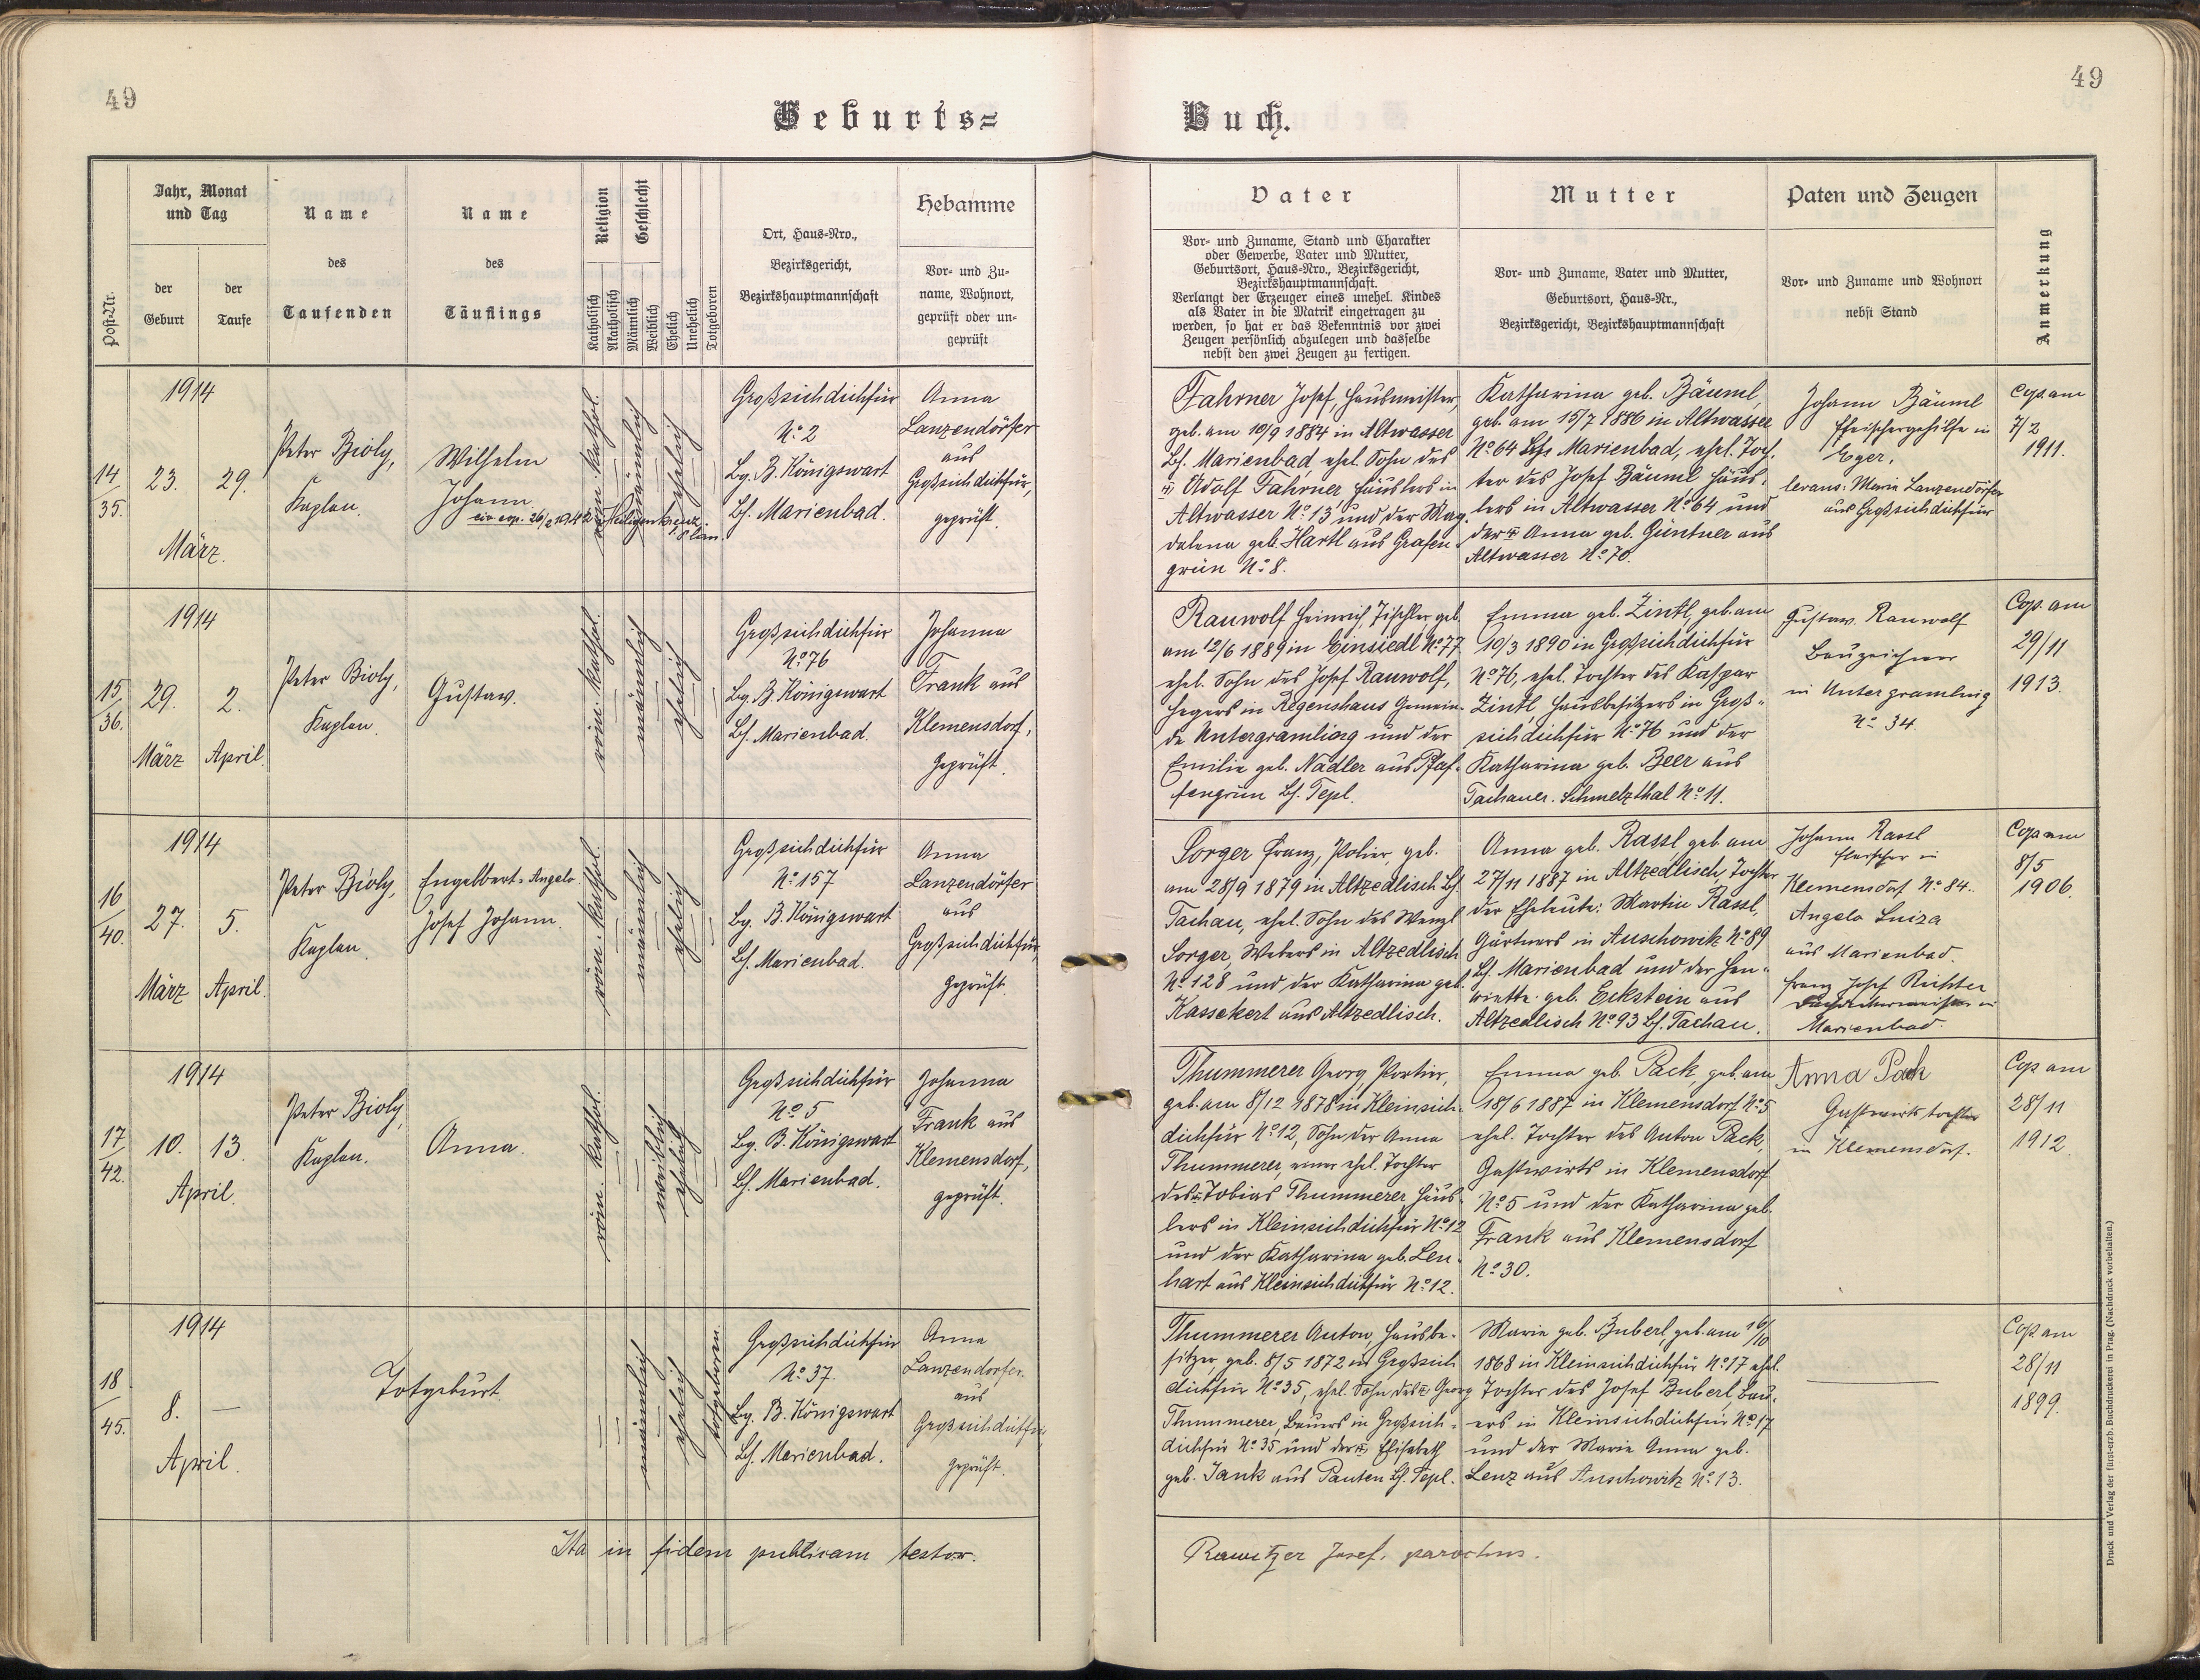 49
49
Geburts=
Buch.
Post-Nr.
Jahr, Monat
und Tag
der
Geburt
der
Taufe
Name
des
Taufenden
Name
des
Täuflings
Religion
Katholisch
Akatholisch
Geschlecht
Männlich
Weiblich
Ehelich
Unehelich
Totgeboren
Ort, Haus-Nro.,
Bezirksgericht,
Bezirkshauptmannschaft
Hebamme
Vor- und Zu-
name, Wohnort,
geprüft oder un-
geprüft
Vater
Vor- und Zuname, Stand und Charakter
oder Gewerbe, Vater und Mutter,
Geburtsort, Haus-Nro., Bezirksgericht,
Bezirkshauptmannschaft.
Verlangt der Erzeuger eines unehel. Kindes
als Vater in die Matrik eingetragen zu
werden, so hat er das Bekenntnis vor zwei
Zeugen persönlich abzulegen und dasselbe
nebst den zwei Zeugen zu fertigen.
Mutter
Vor- und Zuname, Vater und Mutter,
Geburtsort, Haus-Nr.,
Bezirksgericht, Bezirkshauptmannschaft
Paten und Zeugen
Vor- und Zuname und Wohnort
nebst Stand
Anmerkung
14
35.
1914
23. 29.
März.
Peter Bioly,
Kaplan.
Wilhelm
Johann
26/2 1942 Heiligenkreuz
Plan.
röm. kathol.
männlich
ehelich
Großsichdichfür
No. 2
Bg. B. Königswart
Bh. Marienbad.
Anna
Lanzendörfer
aus
Großsichdichfür,
geprüft.
Fahrner Josef, Hausmeister,
geb. am 10/9 1884 in Altwasser
Bh. Marienbad, ehel. Sohn des
Adolf Fahrner, Häuslers in
Altwasser No. 13 und der Mag-
dalena geb. Hartl aus Grafen-
grün No. 8.
Katharina geb. Bäuml,
geb. am 15/7 1886 in Altwasser
No. 64 Bh. Marienbad, ehel. Toch-
ter des Josef Bäuml Häus-
lers in Altwasser No. 64 und
der Anna geb. Güntner aus
Altwasser No. 70.
Johann Bäuml
Fleischergehilfe in
Eger.
levans: Maria Lanzendörfer
aus Großsichdichfür
Cop. am
7/2
1911.
15.
36.
1914
29. 2.
März April.
Peter Bioly,
Kaplan.
Gustav.
röm. kathol.
männlich
ehelich
Großsichdichfür
No. 76
Bg. B. Königswart
Bh. Marienbad.
Johanna
Frank aus
Klemensdorf,
geprüft.
Rauwolf Heinrich, Tischler, geb.
am 12/6 1889 in Einsiedl No. 77.
ehel. Sohn des Josef Rauwolf,
Hegers in Regenshaus Gemein-
de Untergramling und der
Emilie geb. Nadler aus Pfaf-
fengrün Bh. Tepl.
Emma geb. Zintl, geb. am
10/3 1890 in Großsichdichfür
No. 76, ehel. Tochter des Kaspar
Zintl, Hausbesitzers in Groß-
sichdichfür No. 76 und der
Katharina geb. Beer aus
Tachauer-Schmelzthal No. 11.
Gustav Rauwolf
Bauzeichner
in Untergramling
No. 34.
Cop. am
29/11
1913.
16
40.
1914
27. 5.
März April.
Peter Bioly,
Kaplan.
Engelbert-Angelo
Josef Johann.
röm. kathol.
männlich
ehelich
Großsichdichfür
No. 157
Bg. B. Königswart
Bh. Marienbad.
Anna
Lanzendörfer
aus
Großsichdichfür,
geprüft.
Sorger Franz, Polier, geb.
am 28/9 1879 in Altzedlisch Bh.
Tachau, ehel. Sohn des Wenzl
Sorger, Webers in Altzedlisch
No. 128 und der Katharina geb.
Kassekert aus Altzedlisch.
Anna geb. Rassl geb. am
27/11 1887 in Altzedlisch, Tochter
der Eheleute: Martin Rassl,
Gärtners in Auschowitz No. 89
Bh. Marienbad und der Hen-
riette geb. Eckstein aus
Altzedlisch No. 93 Bh. Tachau.
Johann Rassl
Fleischer in
Klemensdorf No. 84.
Angelo Luiza
aus Marienbad.
Franz Josef Richter
Marienbad.
Cop am
8/5
1906.
17
42.
1914
10. 13.
April.
Peter Bioly,
Kaplan.
Anna.
röm. kathol.
weiblich
ehelich
Großsichdichfür
No. 5
Bg. B. Königswart
Bh. Marienbad.
Johanna
Frank aus
Klemensdorf,
geprüft.
Thummerer Georg, Portier,
geb. am 8/12 1878 in Kleinsich-
dichfür No. 12, Sohn der Anna
Thummerer, einer ehel. Tochter
des Tobias Thummerer Häus-
lers in Kleinsichdichfür No. 12
und der Katharina geb. Len-
hart aus Kleinsichdichfür No. 12.
Emma geb. Pack, geb. am
18/6 1887 in Klemensdorf No. 5
ehel. Tochter des Anton Pack,
Gastwirts in Klemensdorf
No. 5 und der Katharina geb.
Frank aus Klemensdorf
No. 30.
Anna Pack
Gastwirtstochter
in Klemensdorf.
Cop am
28/11
1912.
18
45.
1914
8. —
April.
Totgeburt.
männlich
ehelich
totgeboren.
Großsichdichfür
No. 37.
Bg. B. Königswart
Bh. Marienbad.
Anna
Lanzendorfer.
aus
Großsichdichfür
geprüft.
Thummerer Anton, Hausbe-
sitzer, geb. 8/5 1872 in Großsich-
dichfür No. 35, ehel. Sohn des Georg
Thummerer, Bauers in Großsich-
dichfür No. 35 und der Elisabeth
geb. Jank aus Pauten Bh. Tepl.
Marie geb. Buberl, geb. am 16/10
1868 in Kleinsichdichfür No. 17 ehel.
Tochter des Josef Buberl, Bau-
ers in Kleinsichdichfür No. 17
und der Marie Anna geb.
Lenz aus Auschowitz No. 13.
Cop am
28/11
1899.
Ita in fidem publicam testor.
Rawitzer Josef, parochus.
Druck und Verlag der fürst-erzb. Buchdruckerei in Prag. (Nachdruck vorbehalten.)